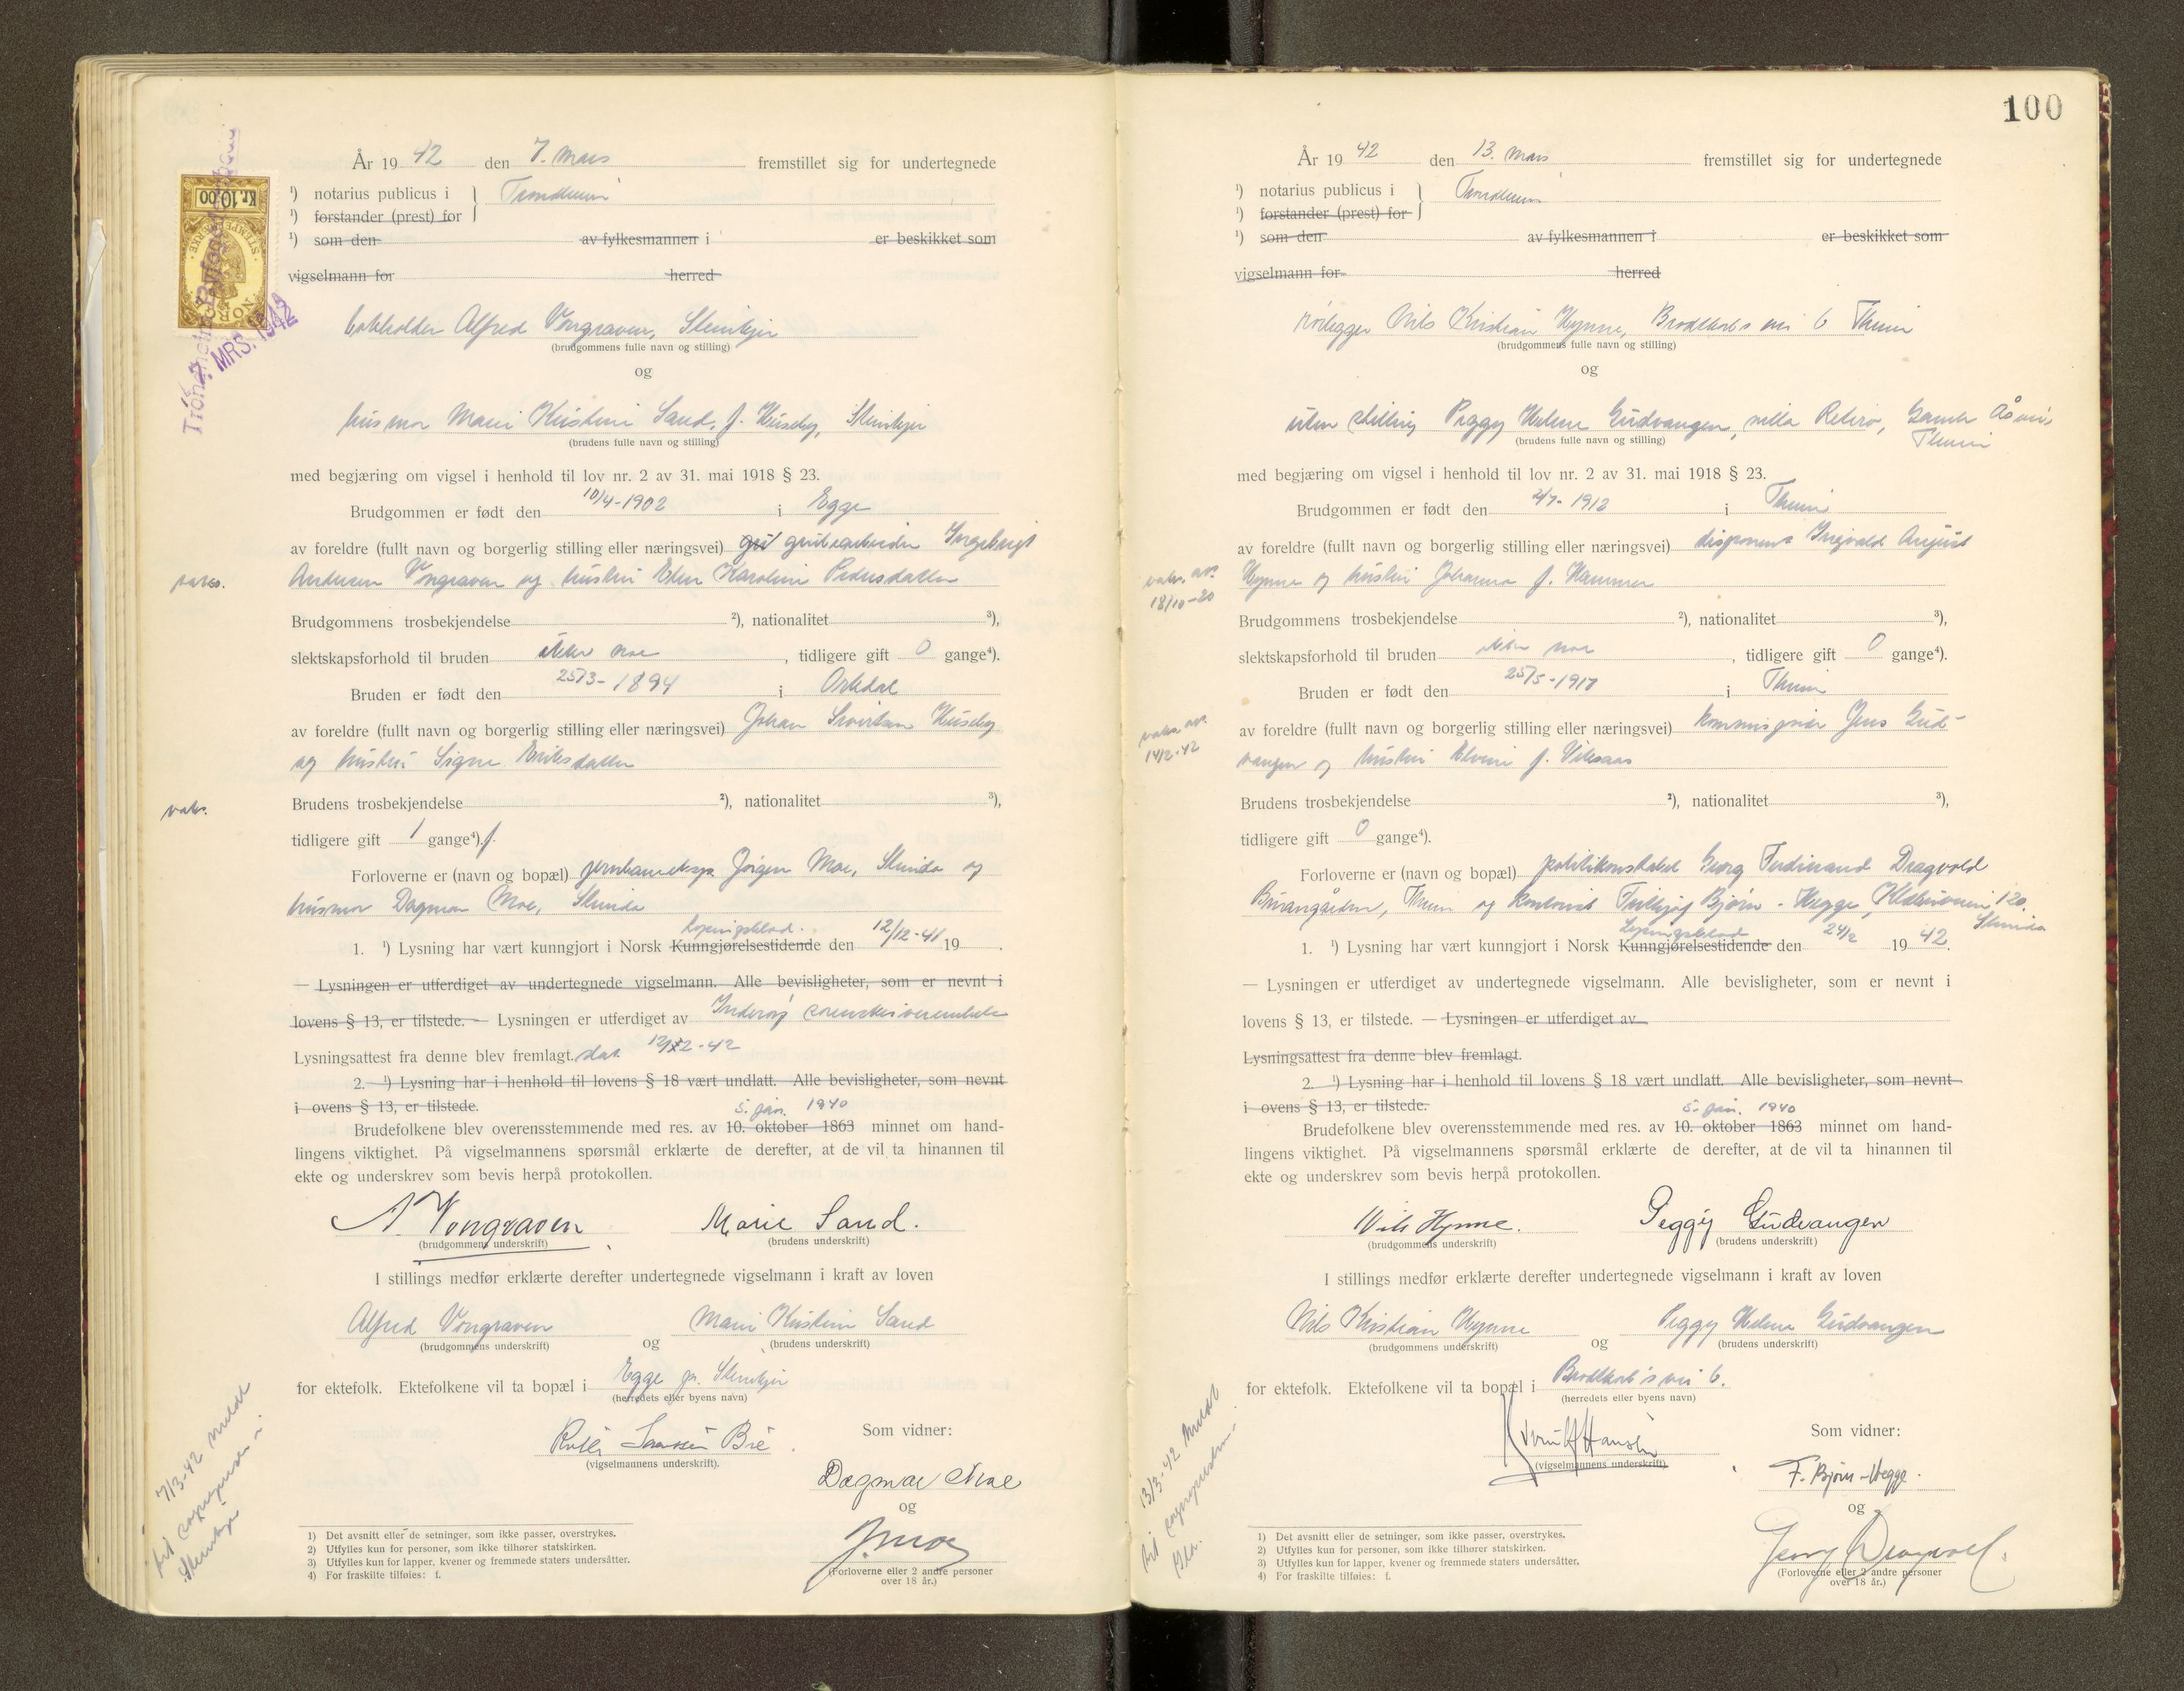 År 19 42 den 7. Mars fremstillet sig for undertegnede
¹) notarius publicus i } Trondheim
¹) forstander (prest) for
¹) som den av fylkesmannen i er beskikket som
vigselmann for herred
bokholder Alfred Vongraven, Steinkjer
(brudgommens fulle navn og stilling)
og
husmor Marie Kristine Sand, f. Huseby, Steinkjer
(brudens fulle navn og stilling)
med begjæring om vigsel i henhold til lov nr. 2 av 31. mai 1918 § 23.
Brudgommen er født den 10/4-1902 i Egge
av foreldre (fullt navn og borgerlig stilling eller næringsvei) grubearbeider Ingebrigt
Andersen Vongraven og hustru Karoline Pedersdatter
Brudgommens trosbekjendelse ²), nationalitet ³),
slektskapsforhold til bruden ikke noe, tidligere gift 0 gange⁴).
Bruden er født den 25/3-1894 i Orkdal
av foreldre (fullt navn og borgerlig stilling eller næringsvei) Johan Huseby
og hustru Signe Eriksdatter
vaks.
Brudens trosbekjendelse ²), nationalitet ³),
tidligere gift 1 gange⁴). f.
Forloverne er (navn og bopæl) Jørgen Moe, Strinda og
husmor Dagmar Moe, Strinda
Lysingsblad.
1. ¹) Lysning har vært kunngjort i Norsk Kunngjørelsestidende den 12/12-41 19 .
— Lysningen er utferdiget av undertegnede vigselmann. Alle bevisligheter, som er nevnt i
lovens § 13, er tilstede. — Lysningen er utferdiget av Inderøy sorenskriverembete
Lysningsattest fra denne blev fremlagt. dat. 12/2-42
2. ¹) Lysning har i henhold til lovens § 18 vært undlatt. Alle bevisligheter, som nevnt
i ovens § 13, er tilstede.
5. jan. 1940
Brudefolkene blev overensstemmende med res. av 10. oktober 1863 minnet om hand-
lingens viktighet. På vigselmannens spørsmål erklærte de derefter, at de vil ta hinannen til
ekte og underskrev som bevis herpå protokollen.
A. Vongraven Marie Sand.
(brudgommens underskrift) (brudens underskrift)
I stillings medfør erklærte derefter undertegnede vigselmann i kraft av loven
Alfred Vongraven og Marie Kristine Sand
(brudgommens underskrift) (brudens underskrift)
for ektefolk. Ektefolkene vil ta bopæl i Egge pr. Steinkjer
(herredets eller byens navn)
(vigselmannens underskrift).
Som vidner:
Dagmar Moe
og
J. Moe
(Forloverne eller 2 andre personer
over 18 år.)
7/3-42 meldt
til sogneprest i
Steinkjer
1) Det avsnitt eller de setninger, som ikke passer, overstrykes.
2) Utfylles kun for personer, som ikke tilhører statskirken.
3) Utfylles kun for lapper, kvener og fremmede staters undersåtter.
4) For fraskilte tilføies: f.
Kr. 10,00
STEMPELMERKE
NORGE
Trondheim Byfogdembete
7. MRS. 1942
100
År 19 42 den 13. mars fremstillet sig for undertegnede
¹) notarius publicus i } Trondheim
¹) forstander (prest) for
¹) som den av fylkesmannen i er beskikket som
vigselmann for herred
rørlegger Nils Kristian Hynne, Brodtkorbs vei 6 Theim
(brudgommens fulle navn og stilling)
og
uten stilling Peggy Helene Gudvangen, villa Retiro, Gamle Åsvei,
Theim
(brudens fulle navn og stilling)
med begjæring om vigsel i henhold til lov nr. 2 av 31. mai 1918 § 23.
Brudgommen er født den 2/7-1912 i Theim
av foreldre (fullt navn og borgerlig stilling eller næringsvei) disponent Ingvald August
vaks. av.
18/10-20
Hynne og hustru Johanna f. Hammer
Brudgommens trosbekjendelse ²), nationalitet ³),
slektskapsforhold til bruden ikke noe, tidligere gift 0 gange⁴).
Bruden er født den 25/5-1917 i Theim
av foreldre (fullt navn og borgerlig stilling eller næringsvei) Jens Gud-
vaks. av.
14/2-42
vangen og hustru f.
Brudens trosbekjendelse ²), nationalitet ³),
tidligere gift 0 gange⁴).
Forloverne er (navn og bopæl) politikonstabel Georg Ferdinand Dragvold
Theim og kontorist Fridtjof Bjørn-Hegge, 120.
Strinda
Lysingsblad
1. ¹) Lysning har vært kunngjort i Norsk Kunngjørelsestidende den 24/2 19 42.
— Lysningen er utferdiget av undertegnede vigselmann. Alle bevisligheter, som er nevnt i
lovens § 13, er tilstede. — Lysningen er utferdiget av
Lysningsattest fra denne blev fremlagt.
2. ¹) Lysning har i henhold til lovens § 18 vært undlatt. Alle bevisligheter, som nevnt
i ovens § 13, er tilstede.
5. jan. 1940
Brudefolkene blev overensstemmende med res. av 10. oktober 1863 minnet om hand-
lingens viktighet. På vigselmannens spørsmål erklærte de derefter, at de vil ta hinannen til
ekte og underskrev som bevis herpå protokollen.
Nils Hynne. Peggy Gudvangen
(brudgommens underskrift) (brudens underskrift)
I stillings medfør erklærte derefter undertegnede vigselmann i kraft av loven
Nils Kristian Hynne og Peggy Helene Gudvangen
(brudgommens underskrift) (brudens underskrift)
for ektefolk. Ektefolkene vil ta bopæl i Brodtkorb's vei 6.
(herredets eller byens navn)
Hansen
(vigselmannens underskrift)
Som vidner:
F. Bjørn-Hegge.
og
Georg Dragvold.
(Forloverne eller 2 andre personer
over 18 år.)
13/3-42 meldt
til sogneprest
1) Det avsnitt eller de setninger, som ikke passer, overstrykes.
2) Utfylles kun for personer, som ikke tilhører statskirken.
3) Utfylles kun for lapper, kvener og fremmede staters undersåtter.
4) For fraskilte tilføies: f.